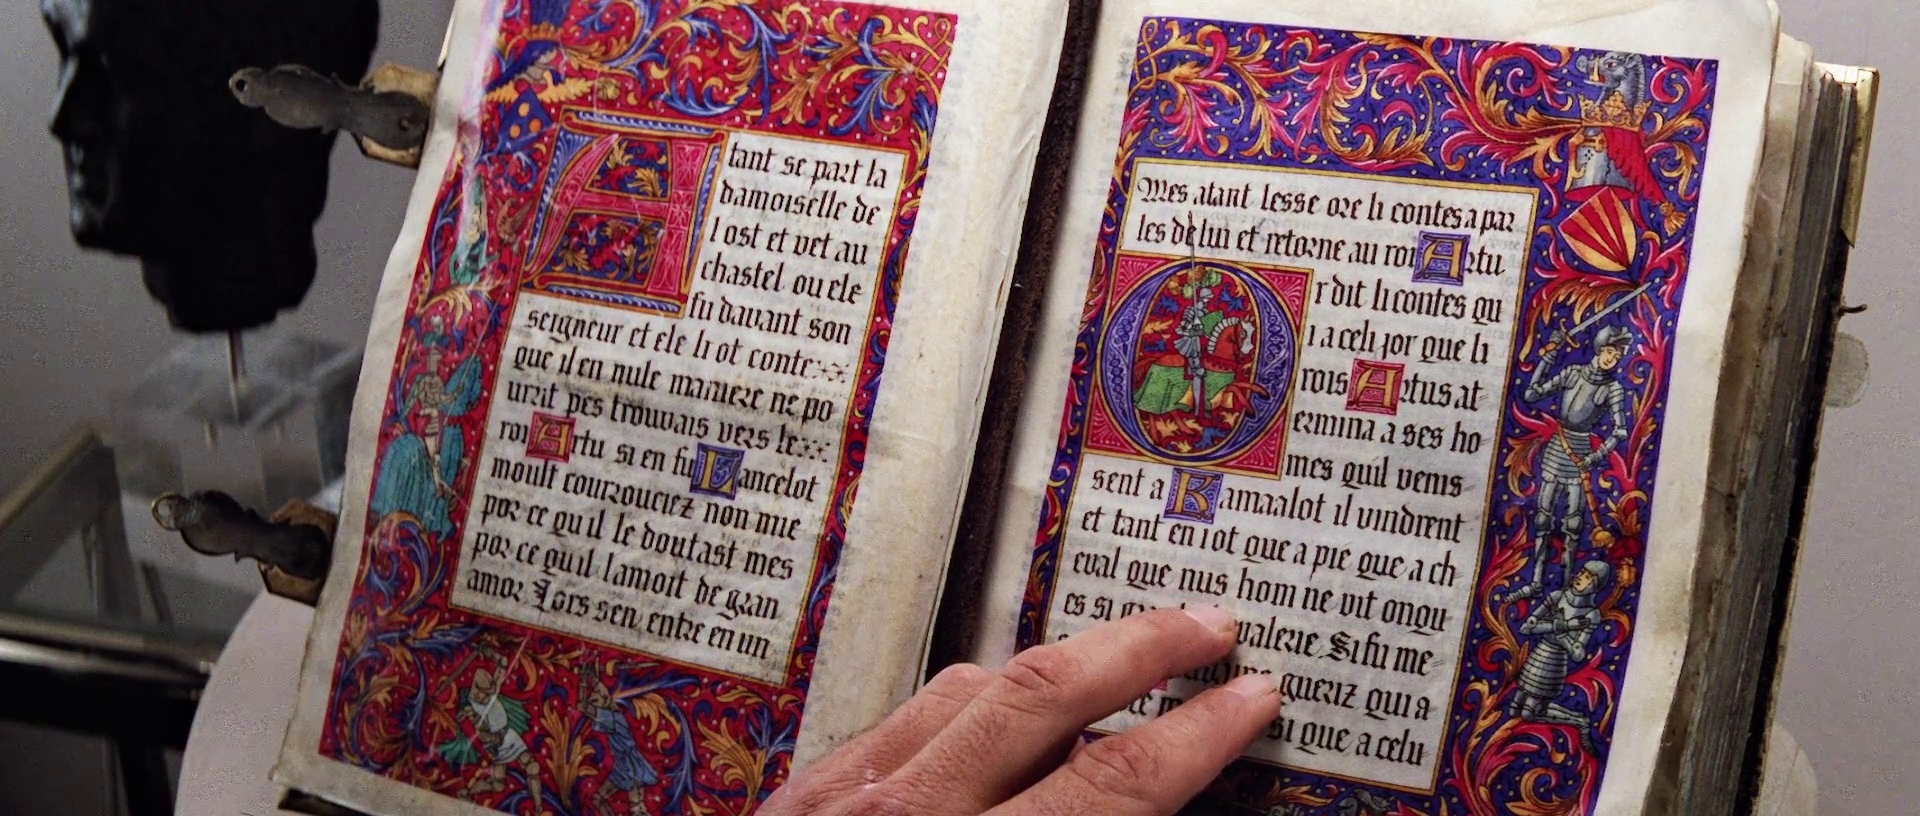 Atant se part la
damoiselle de
lost et vet au
chastel ou ele
fu davant son
seigneur et ele li ot conte
que il en nule maniere ne po
urrit pes trouvais vers le
roi Artu si en fu Lancelot
moult courzouciez non mie
por ce qu il le doutast mes
por ce qu il lamoit de gran
amor Lors sen entre en un
Mes atant lesse ore li contes a par
les de lui et retorne au roi Artu
Or dit li contes qu
i a celi jor que li
rois Artus at
ermina a ses ho
mes quil venis
sent a Kamaalot il vindrent
et tant en i ot que a pie que a ch
eval que nus hom ne vit onqu
es si valerie Si fu me
gueriz qui a
si que a celu